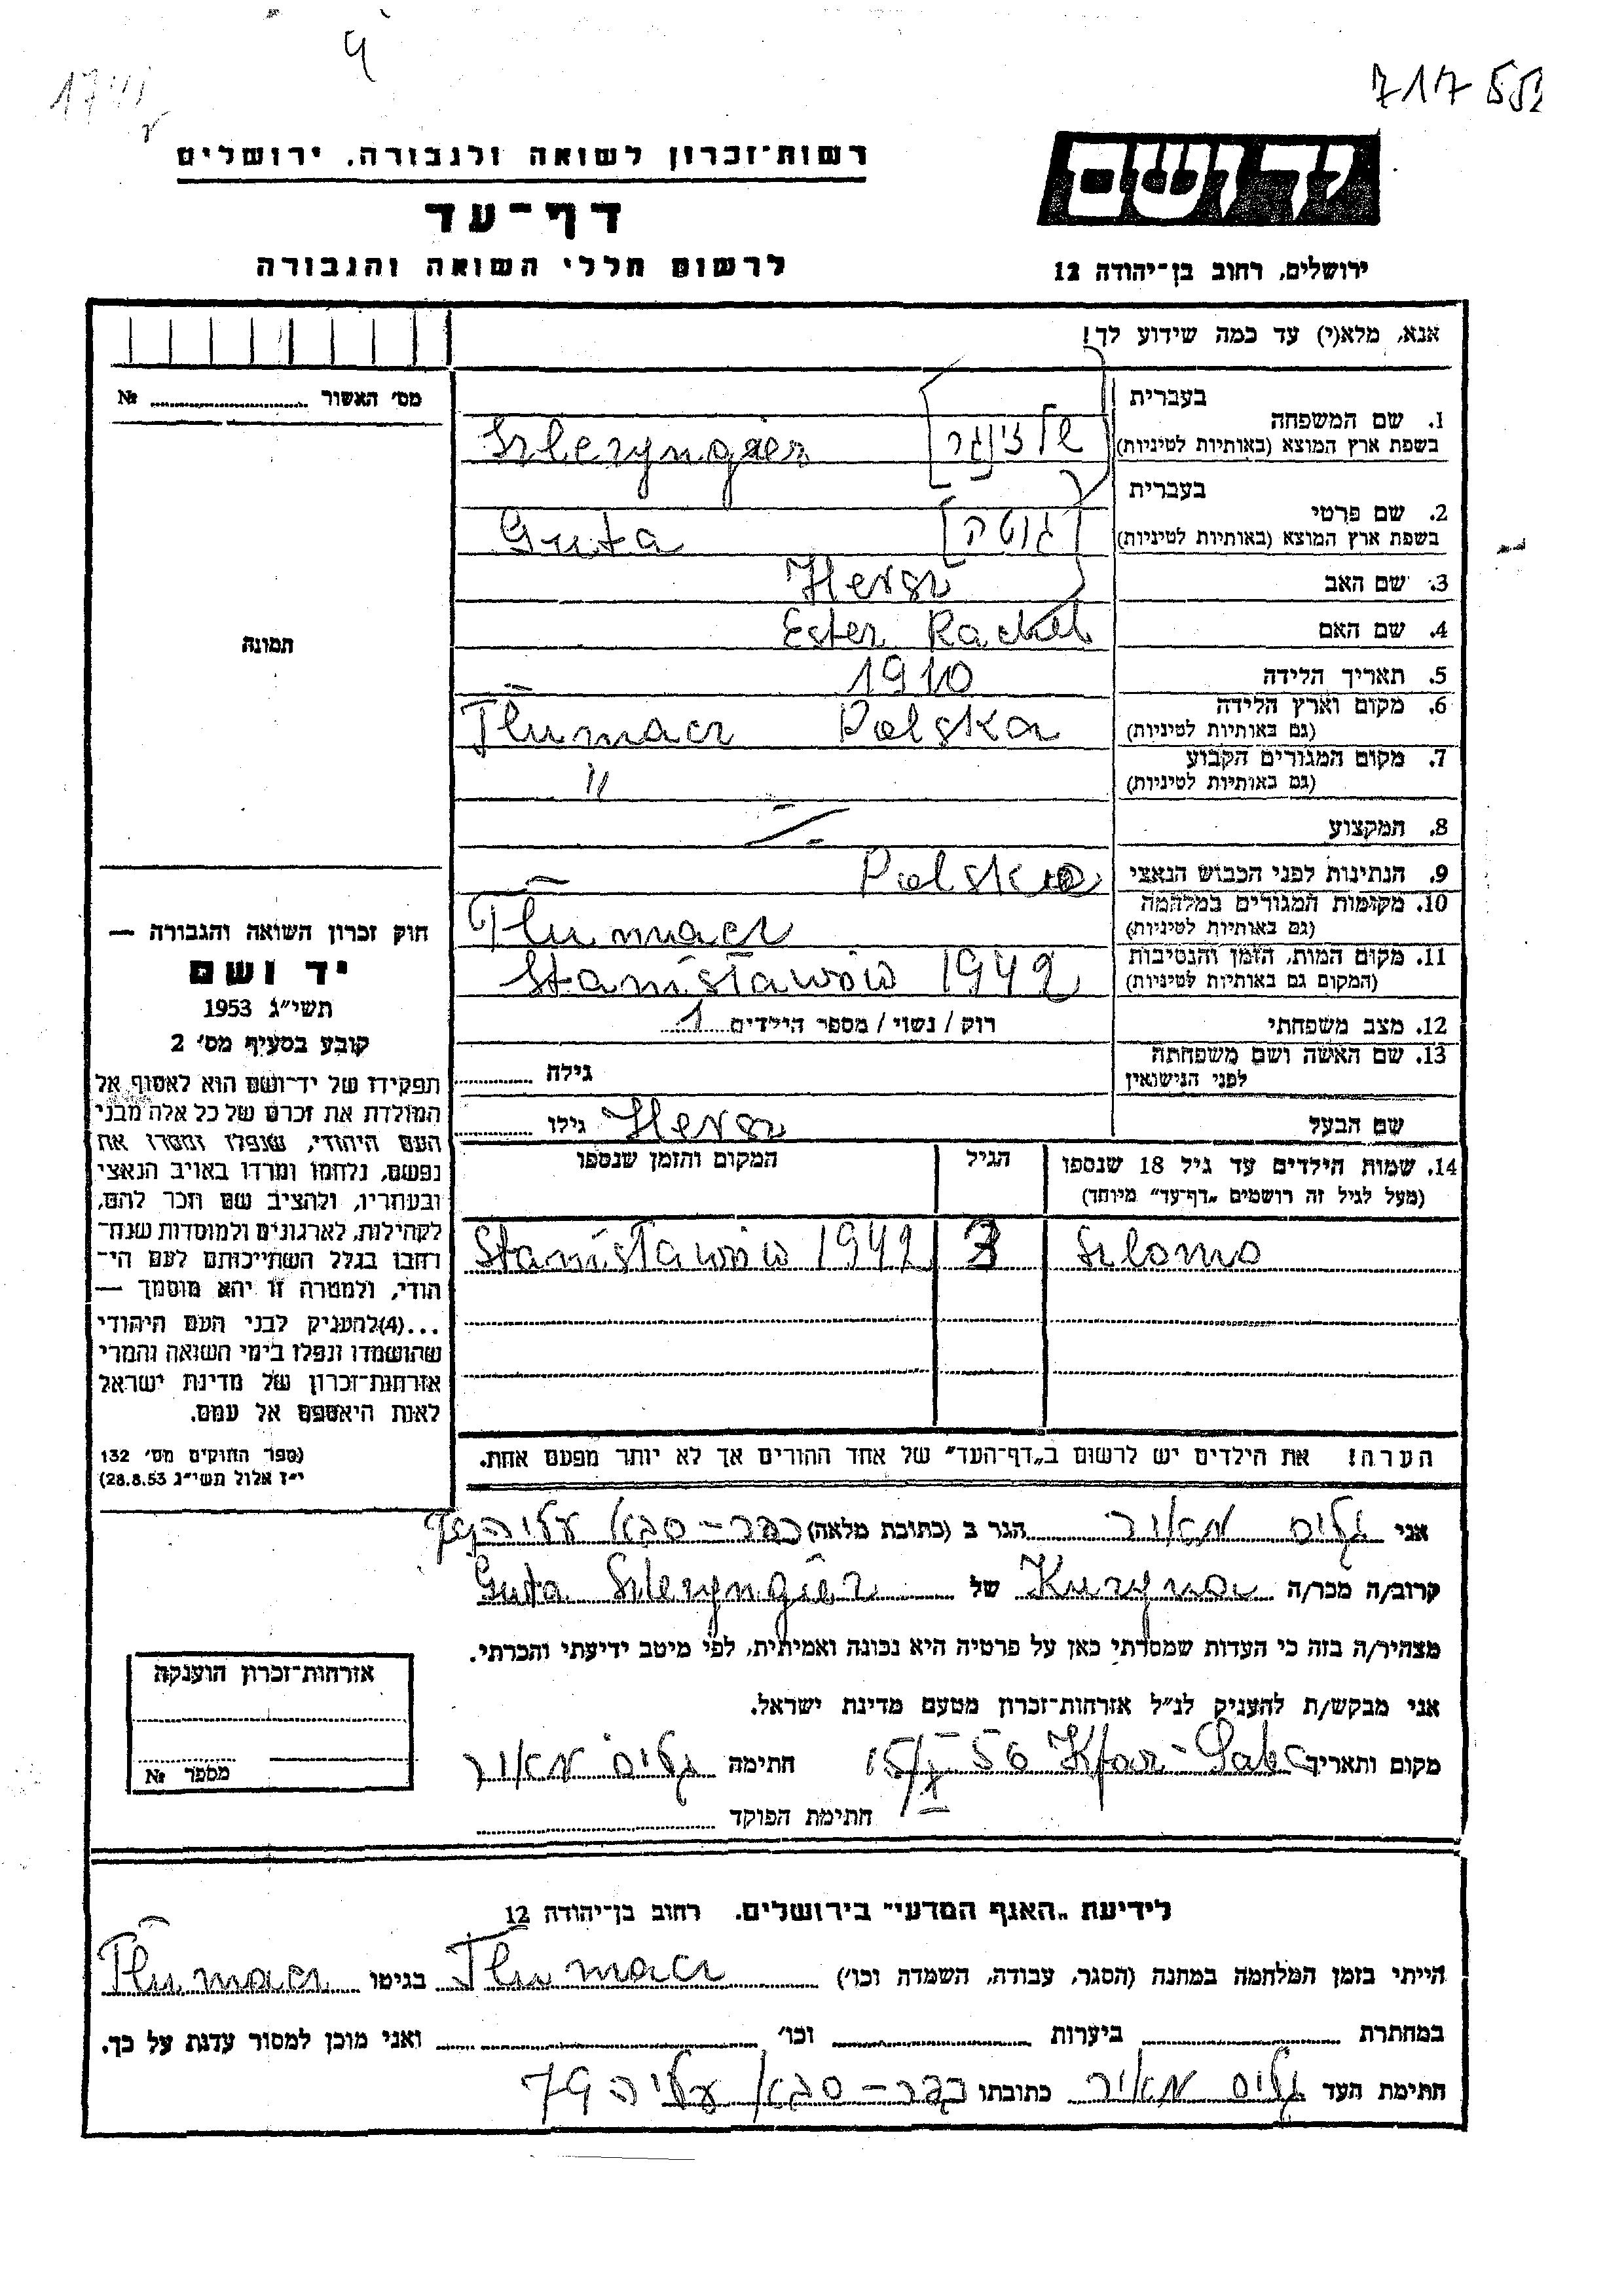 717553
רשות־זכרון לשואה ולגבורה, ירושלים
דף־עד
לרשום חללי השואה והגבורה
יד ושם
ירושלים, רחוב בן־יהודה 12
אנא, מלא(י) עד כמה שידוע לך!
מס' האשור № 
1. שם המשפחה
בעברית
שלזינגר
בשפת ארץ המוצא (באותיות לטיניות)
Szlezyngier
2. שם פרטי
בעברית
גוטה
בשפת ארץ המוצא (באותיות לטיניות)
Guta
3. שם האב Hersz
4. שם האם Ester Rachel
5. תאריך הלידה 1910
6. מקום וארץ הלידה Polska Tłumacz
(גם באותיות לטיניות)
7. מקום המגורים הקבוע "
(גם באותיות לטיניות)
8. המקצוע
9. הנתינות לפני הכבוש הנאצי Polska
10. מקומות המגורים במלחמה Tłumacz
(גם באותיות לטיניות)
11. מקום המות, הזמן והנסיבות Stanisławów 1942
(המקום גם באותיות לטיניות)
12. מצב משפחתי רוק / נשוי / מספר הילדים 1
13. שם האשה ושם משפחתה
לפני הנישואין
גילה
שם הבעל Hersz גילו
14. שמות הילדים עד גיל 18 שנספו
(מעל לגיל זה רושמים „דף־עד" מיוחד)
הגיל
המקום והזמן שנספו
Szlomo 3 Stanisławów 1942
הערה! את הילדים יש לרשום ב„דף־העד" של אחד ההורים אך לא יותר מפעם אחת.
תמונה
חוק זכרון השואה והגבורה —
יד ושם
תשי״ג 1953
קובע בסעיף מס' 2
תפקידו של יד־ושם הוא לאסוף אל
המולדת את זכרם של כל אלה מבני
העם היהודי, שנפלו ומסרו את
נפשם, נלחמו ומרדו באויב הנאצי
ובעוזריו, ולהציב שם וזכר להם,
לקהילות, לארגונים ולמוסדות שנח־
רבו בגלל השתייכותם לעם הי־
הודי, ולמטרה זו יהא מוסמך —
...(4)להעניק לבני העם היהודי
שהושמדו ונפלו בימי השואה והמרי
אזרחות־זכרון של מדינת ישראל
לאות היאספם אל עמם.
(ספר החוקים מס' 132
י״ז אלול תשי״ג 28.8.53)
אני גליס מאיר הגר ב (כתובת מלאה) כפר-סבא עליה 79
קרוב/ה מכר/ה Kuzyna של Guta Szlezyngier
מצהיר/ה בזה כי העדות שמסרתי כאן על פרטיה היא נכונה ואמיתית, לפי מיטב ידיעתי והכרתי.
אני מבקש/ת להעניק לנ״ל אזרחות־זכרון מטעם מדינת ישראל.
מקום ותאריך Kfar-Saba 15/X 56 חתימה גליס מאיר
חתימת הפוקד
אזרחות־זכרון הוענקה
מספר №
לידיעת „האגף המדעי" בירושלים, רחוב בן־יהודה 12
הייתי בזמן המלחמה במחנה (הסגר, עבודה, השמדה וכו') Tłumacz בגיטו Tłumacz
במחתרת ביערות וכו' ואני מוכן למסור עדות על כך.
חתימת העד גליס מאיר כתובתו כפר-סבא עליה 79